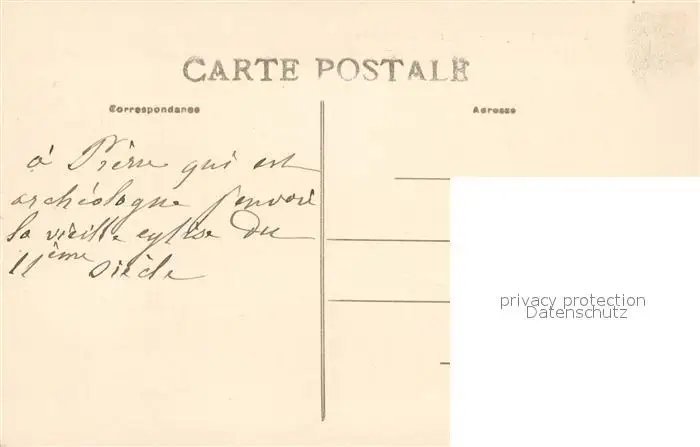 CARTE POSTALE
Correspondance
Adresse
à Pierre qui est
archéologue j'envoie
la vieille eglise du
11ème siècle
privacy protection
Datenschutz